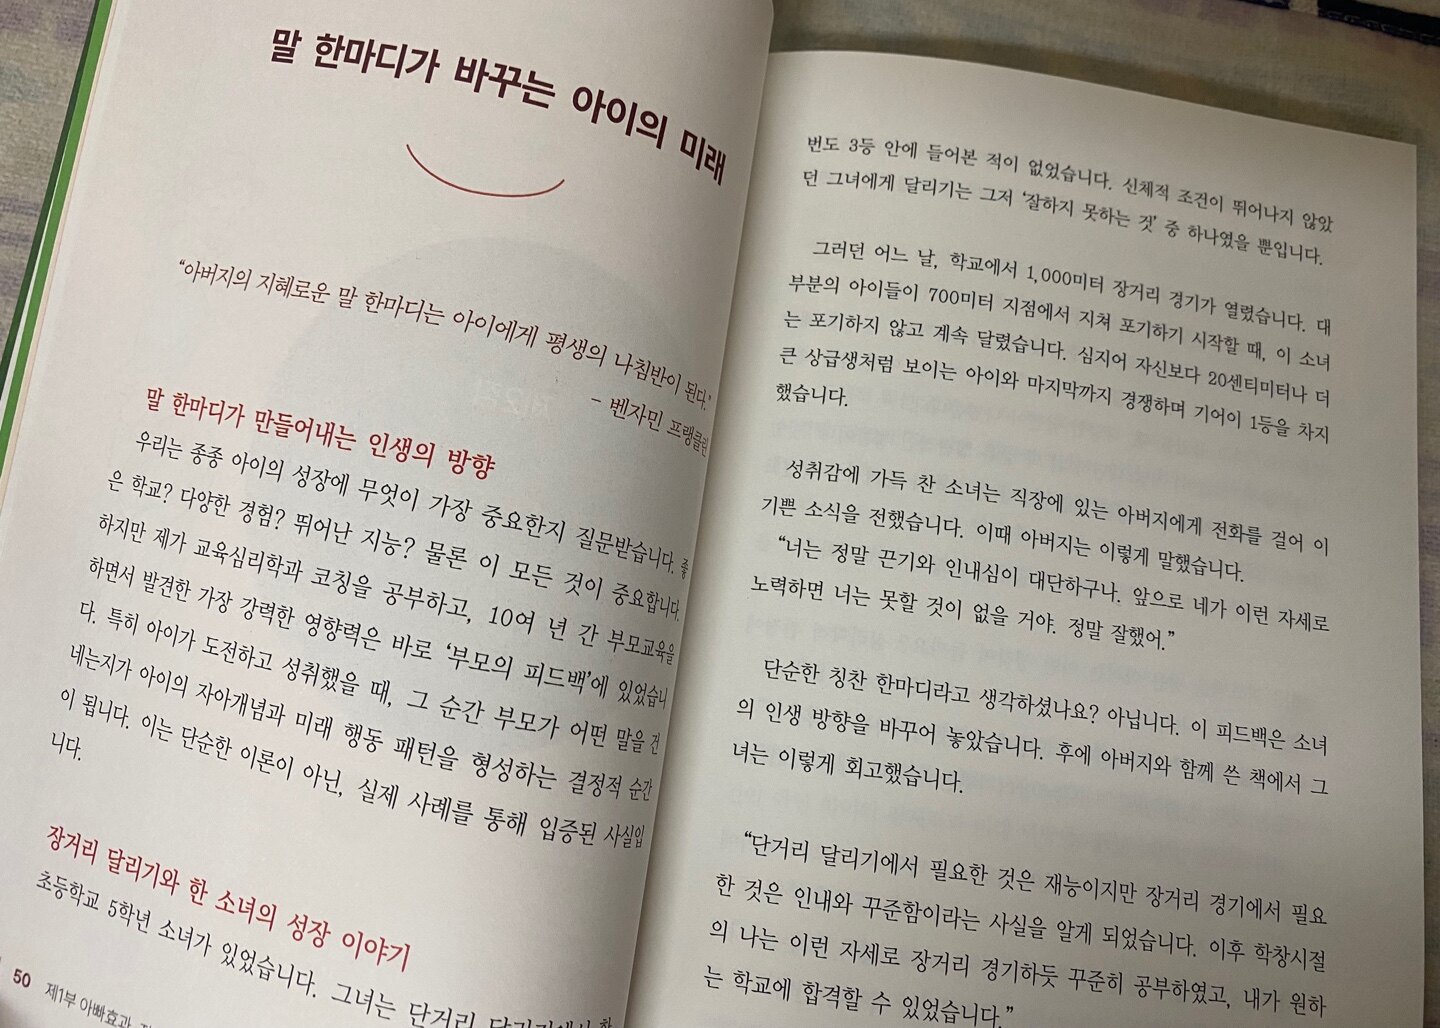 말 한마디가 바꾸는 아이의 미래
“아버지의 지혜로운 말 한마디는 아이에게 평생의 나침반이 된다.”
– 벤자민 프랭클린
말 한마디가 만들어내는 인생의 방향
우리는 종종 아이의 성장에 무엇이 가장 중요한지 질문받습니다. 좋
은 학교? 다양한 경험? 뛰어난 지능? 물론 이 모든 것이 중요합니다.
하지만 제가 교육심리학과 코칭을 공부하고, 10여 년 간 부모교육을
하면서 발견한 가장 강력한 영향력은 바로 ‘부모의 피드백’에 있었습니
다. 특히 아이가 도전하고 성취했을 때, 그 순간 부모가 어떤 말을 건
네는지가 아이의 자아개념과 미래 행동 패턴을 형성하는 결정적 순간
이 됩니다. 이는 단순한 이론이 아닌, 실제 사례를 통해 입증된 사실입
니다.
장거리 달리기와 한 소녀의 성장 이야기
초등학교 5학년 소녀가 있었습니다. 그녀는 단거리 달리기에서 한
50 제1부 아빠효과
번도 3등 안에 들어본 적이 없었습니다. 신체적 조건이 뛰어나지 않았
던 그녀에게 달리기는 그저 ‘잘하지 못하는 것’ 중 하나였을 뿐입니다.
그러던 어느 날, 학교에서 1,000미터 장거리 경기가 열렸습니다. 대
부분의 아이들이 700미터 지점에서 지쳐 포기하기 시작할 때, 이 소녀
는 포기하지 않고 계속 달렸습니다. 심지어 자신보다 20센티미터나 더
큰 상급생처럼 보이는 아이와 마지막까지 경쟁하며 기어이 1등을 차지
했습니다.
성취감에 가득 찬 소녀는 직장에 있는 아버지에게 전화를 걸어 이
기쁜 소식을 전했습니다. 이때 아버지는 이렇게 말했습니다.
“너는 정말 끈기와 인내심이 대단하구나. 앞으로 네가 이런 자세로
노력하면 너는 못할 것이 없을 거야. 정말 잘했어.”
단순한 칭찬 한마디라고 생각하셨나요? 아닙니다. 이 피드백은 소녀
의 인생 방향을 바꾸어 놓았습니다. 후에 아버지와 함께 쓴 책에서 그
녀는 이렇게 회고했습니다.
“단거리 달리기에서 필요한 것은 재능이지만 장거리 경기에서 필요
한 것은 인내와 꾸준함이라는 사실을 알게 되었습니다. 이후 학창시절
의 나는 이런 자세로 장거리 경기하듯 꾸준히 공부하였고, 내가 원하
는 학교에 합격할 수 있었습니다.”